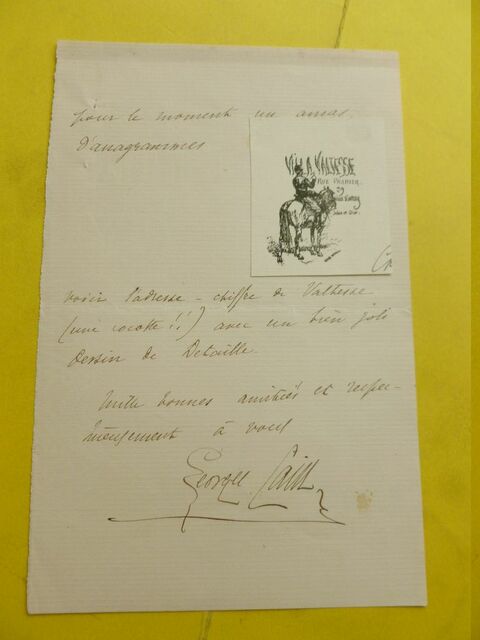 pour le moment un amas
d'anagrammes
VILLA VALTESSE
RUE PRADIER
29
Ville d'Avray
Seine et Oise
voici l'adresse - chiffre de Valtesse
(une cocotte !!) avec un bien joli
dessin de Detaille
Mille bonnes amitiés et respec-
tueusement à vous
Georges Cain